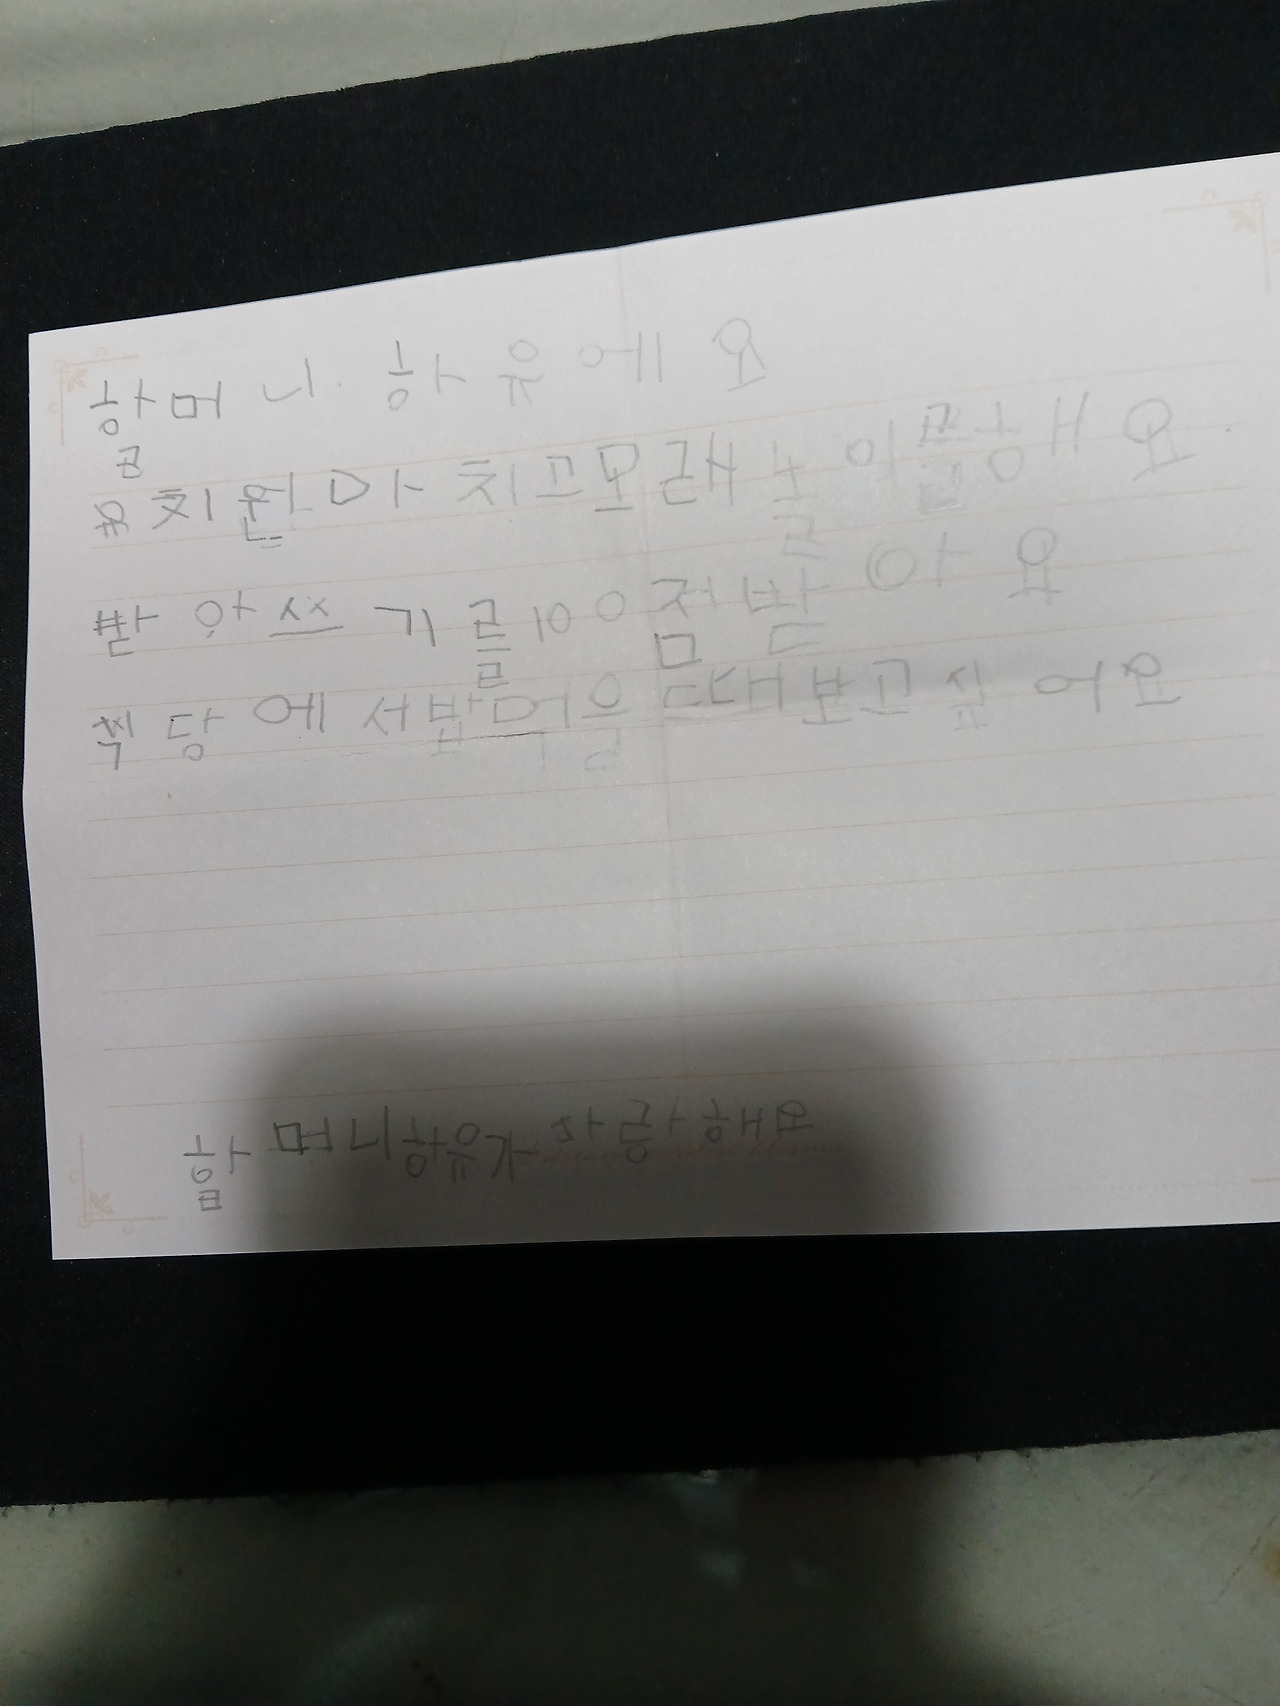 할머니 하유에요
유치원마치고모래놀이를해요.
받아쓰기를100점받아요
찍당에서밥먹을때보고싶어요
할머니하유가사랑해요